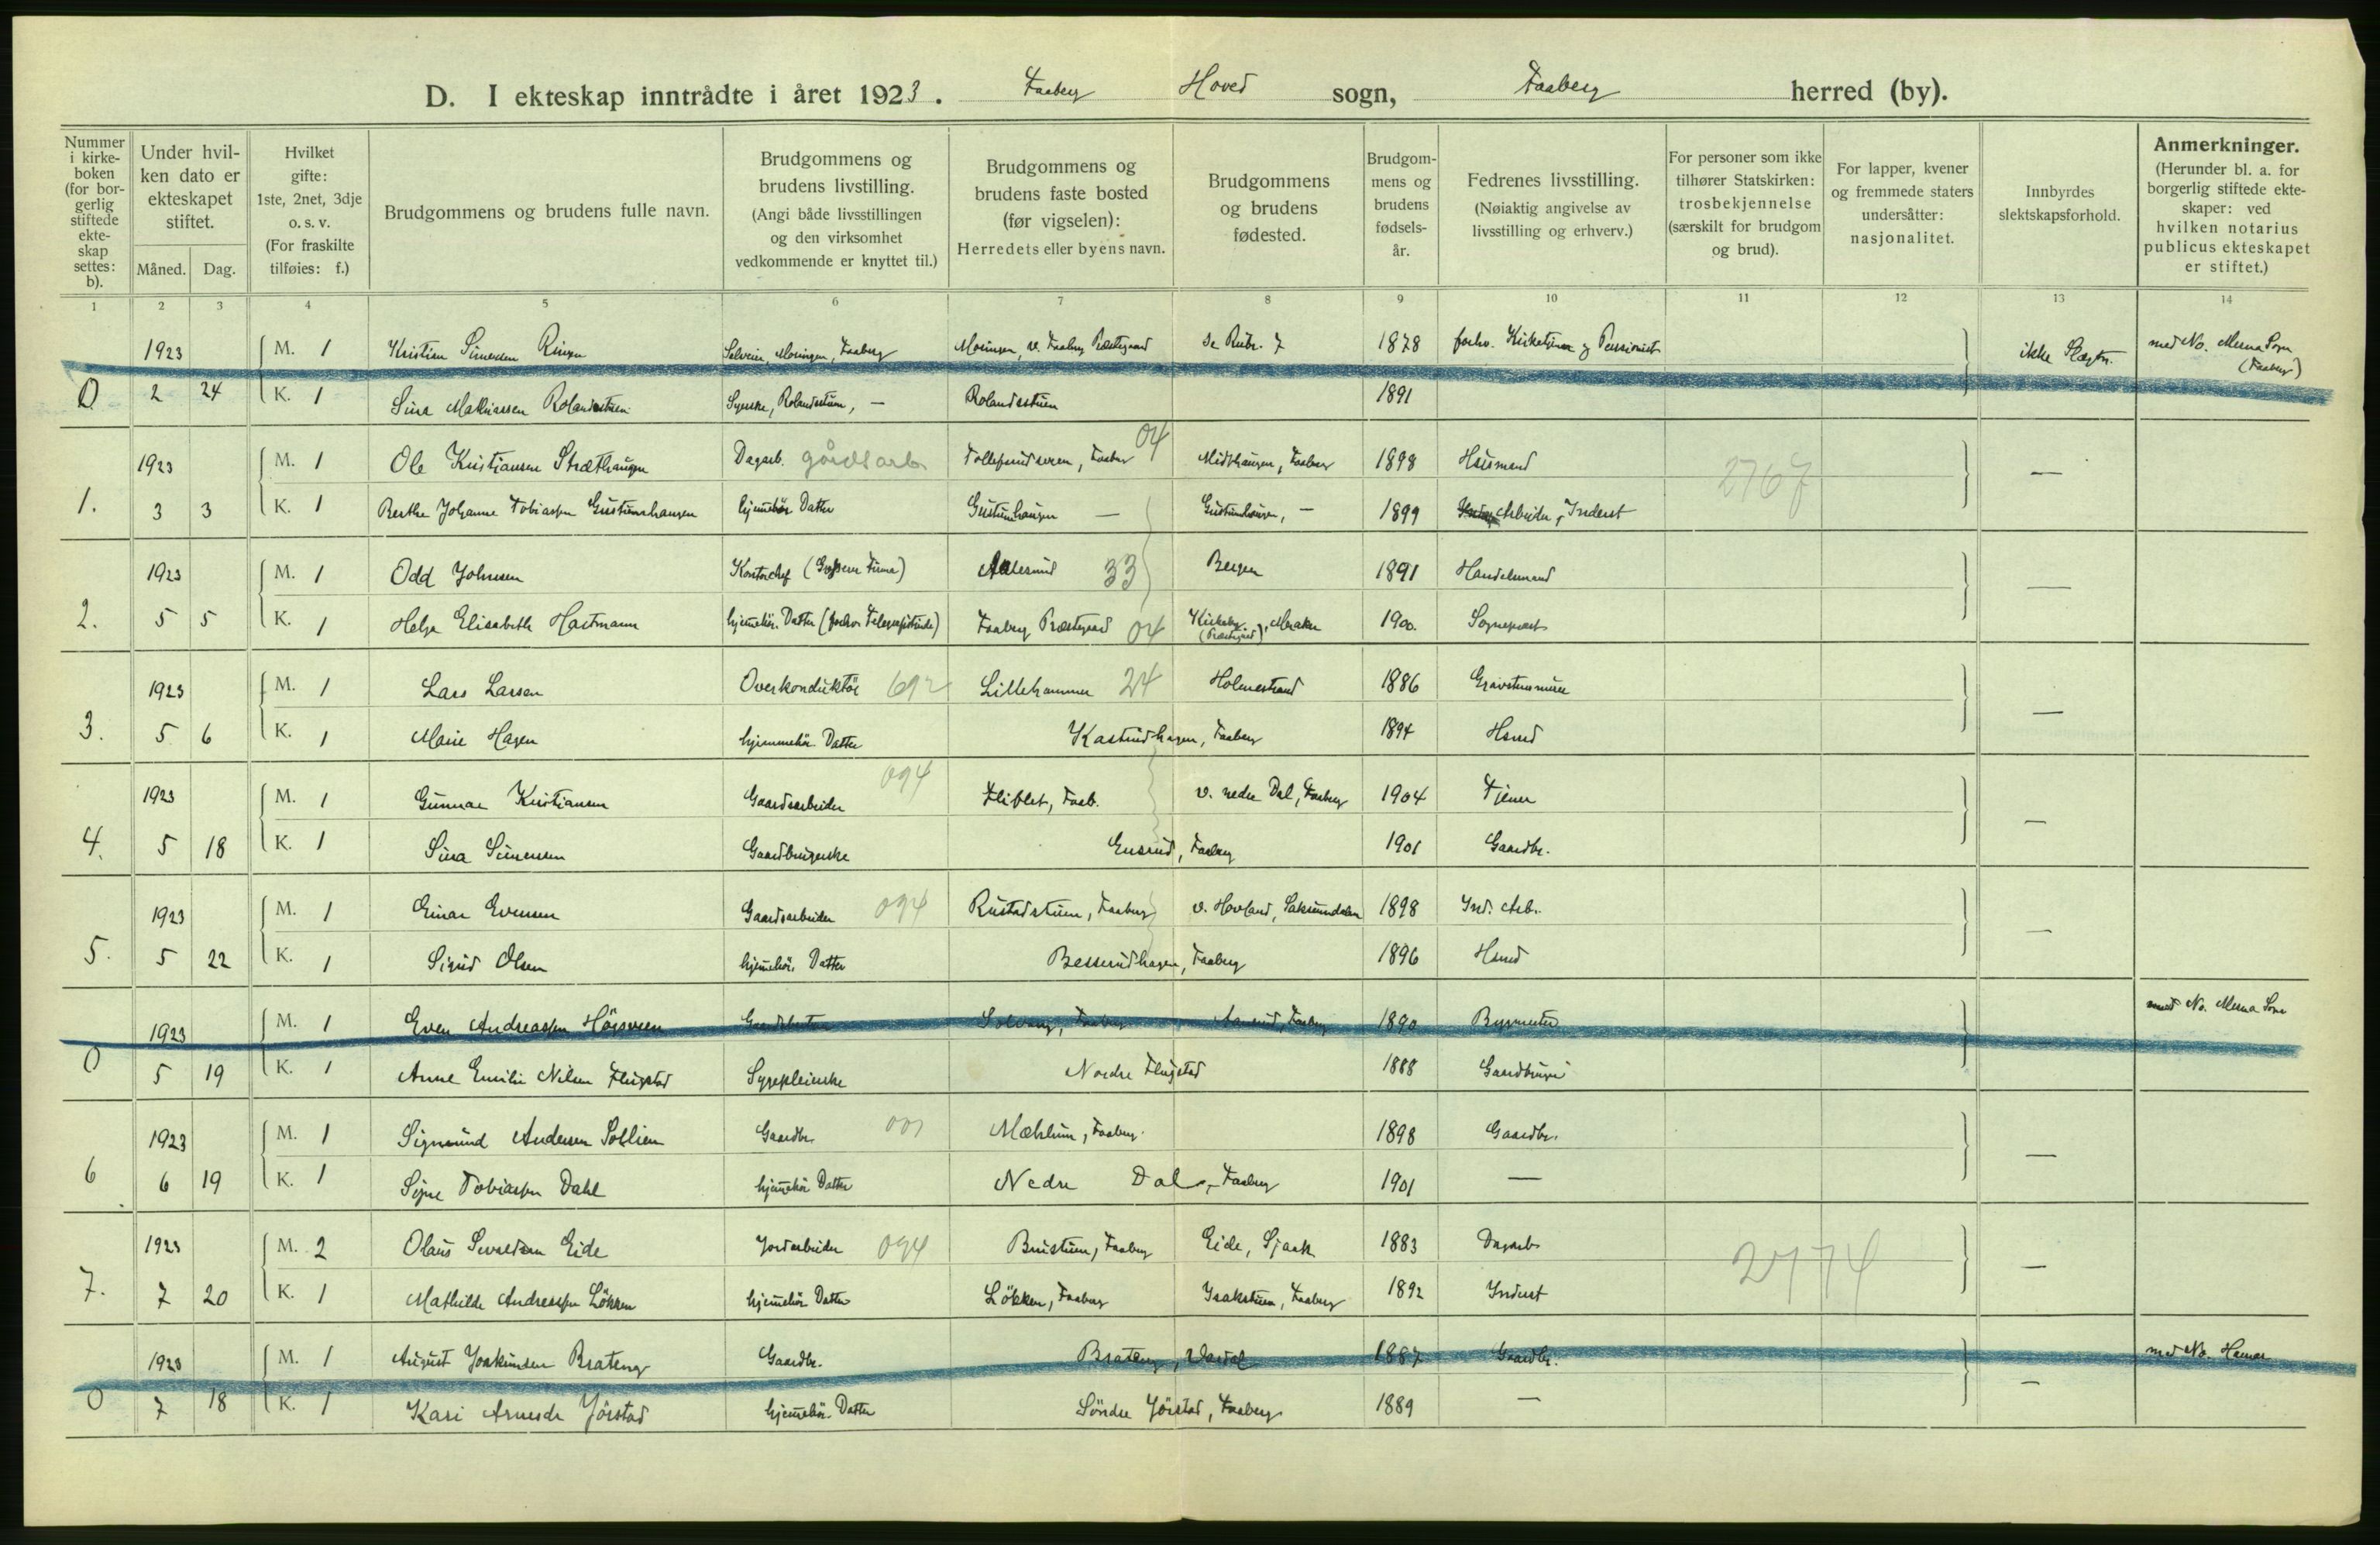 D. I ekteskap inntrådte i året 1923. Faaberg Hoved sogn, Faaberg herred (by).
Nummer i kirkeboken (for borgerlig stiftede ekteskap settes: b).
Under hvilken dato er ekteskapet stiftet.
Måned. Dag.
Hvilket gifte: 1ste, 2net, 3dje o. s. v. (For fraskilte tilføies: f.)
Brudgommens og brudens fulle navn.
Brudgommens og brudens livstilling. (Angi både livsstillingen og den virksomhet vedkommende er knyttet til.)
Brudgommens og brudens faste bosted (før vigselen): Herredets eller byens navn.
Brudgommens og brudens fødested.
Brudgommens og brudens fødselsår.
Fedrenes livsstilling. (Nøiaktig angivelse av livsstilling og erhverv.)
For personer som ikke tilhører Statskirken: trosbekjennelse (særskilt for brudgom og brud).
For lapper, kvener og fremmede staters undersåtter: nasjonalitet.
Innbyrdes slektskapsforhold.
Anmerkninger. (Herunder bl. a. for borgerlig stiftede ekteskaper: ved hvilken notarius publicus ekteskapet er stiftet.)
1 2 3 4 5 6 7 8 9 10 11 12 13 14
1923 M. 1 Kristian Simensen Ringen Moringen, v. Faaberg Præstegaard Se Rubr. 7 1878 forhv. Kirketjener og Pensionist ikke Slægtn. med No. Mesna Sogn (Faaberg)
0 2 24 K. 1 Sina Mathiassen Rolandsstuen Syerske, Rolandsstuen, — Rolandsstuen 1891
1923 M. 1 Ole Kristiansen Stræthaugen Dagarb. gårdsarb 04 Midthaugen, Faaberg 1898 Husmand 2767 —
1. 3 3 K. 1 Berthe Johanne Tobiassen Gustumhaugen hjemmehør. Datter Gustumhaugen — Gustumhaugen, — 1899 Arbeider, Inderst
1923 M. 1 Odd Johnsen Kontorchef Aalesund 33 Bergen 1891 Handelsmand —
2. 5 5 K. 1 Helga Elisabeth Hartmann hjemmehør. Datter (forhv. Telegrafistinde) Faaberg Præstegaard 04 Kirkeby (Præstegaard), Meraker 1900. Sogneprest
1923 M. 1 Lars Larsen Overkonduktør 692 Lillehammer 24 Holmestrand 1886 —
3. 5 6 K. 1 Marie Hagen hjemmehør. Datter Kastrudhagen, Faaberg 1894 Hsmd
1923 M. 1 Gunnar Kristiansen Gaardsarbeider 094 Flisblet, Faab. v. nedre Dal, Faaberg 1904 Tjener —
4. 5 18 K. 1 Sina Simensen Gaardbrugerske Ensrud, Faaberg 1901 Gaardbr.
1923 M. 1 Einar Evensen Gaardsarbeider 094 Rustadstuen, Faaberg v. Hovland, Saksumdalen 1898 Ind. Arb. —
5. 5 22 K. 1 Sigrid Olsen hjemmehør. Datter Besserudhagen, Faaberg 1896 Hsmd
1923 M. 1 Even Andreassen Hørsveen Solvang, Faaberg Aamrud, Faaberg 1890 Bygmester med No. Mesna Sogn
0 5 19 K. 1 Anne Emilie Nilsen Flugstad Sygepleierske Nordre Flugstad 1888 Gaardbruger
1923 M. 1 Sigmund Andersen Sollien Gaardbr. 001 Mæhlum, Faaberg. 1898 Gaardbr. —
6. 6 19 K. 1 Signe Tobiassen Dahl hjemmehør. Datter Nedre Dal, Faaberg 1901 —
1923 M. 2 Olaus Sevaldsen Eide Jordarbeider 094 Bustuen, Faaberg Eide, Sjaak 1883 Dagarb. 2774 —
7. 7 20 K. 1 Mathilde Andreassen Løkken hjemmehør. Datter Løkken, Faaberg Isakstuen, Faaberg 1892 Inderst
1923 M. 1 August Joakimsen Brateng Gaardbr. Brateng, Vardal 1887 Gaardbr. — med No. Hamar
0 7 18 K. 1 Kari Arnesdr Jørstad hjemmehør. Datter Søndre Jørstad, Faaberg 1889 —